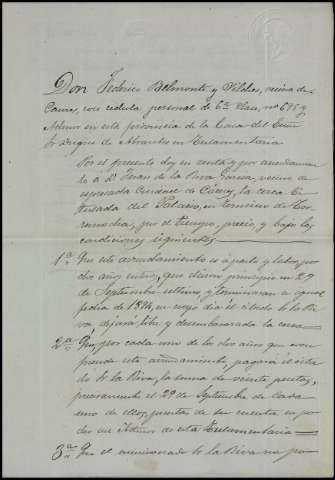 Don Federico Belmonte y Vilches, vecino de
Cáceres, con cédula personal de 6ª clase, nº 695 y
Admor en esta provincia de la Casa del Excmo
Sr Duque de Abrantes en Testamentaria
Por el presente doy en renta y por arrendamien-
to á Dn Juan de la Riva García, vecino de
expresada Ciudad de Cáceres, la cerca ti-
tulada del Palacio, en término de Tor-
remocha, por el tiempo, precio y bajo las
condiciones siguientes
1ª Que este arrendamiento es á pasto y labor, por
dos años enteros, que dieron principio en 29
de Septiembre último y terminarán a igual
fecha de 1894, en cuyo dia el citado de la Ri-
va, dejará libre y desembarazada la cerca
2ª Que por cada uno de los dos años que com-
prende este arrendamiento, pagará el cita-
do de la Riva, la suma de veinte pesetas,
precisamente el 29 de Septiembre de cada
uno de ellos, puestas de su cuenta en po-
der del Admor de esta Testamentaria
3ª Que el mencionado de la Riva no po-